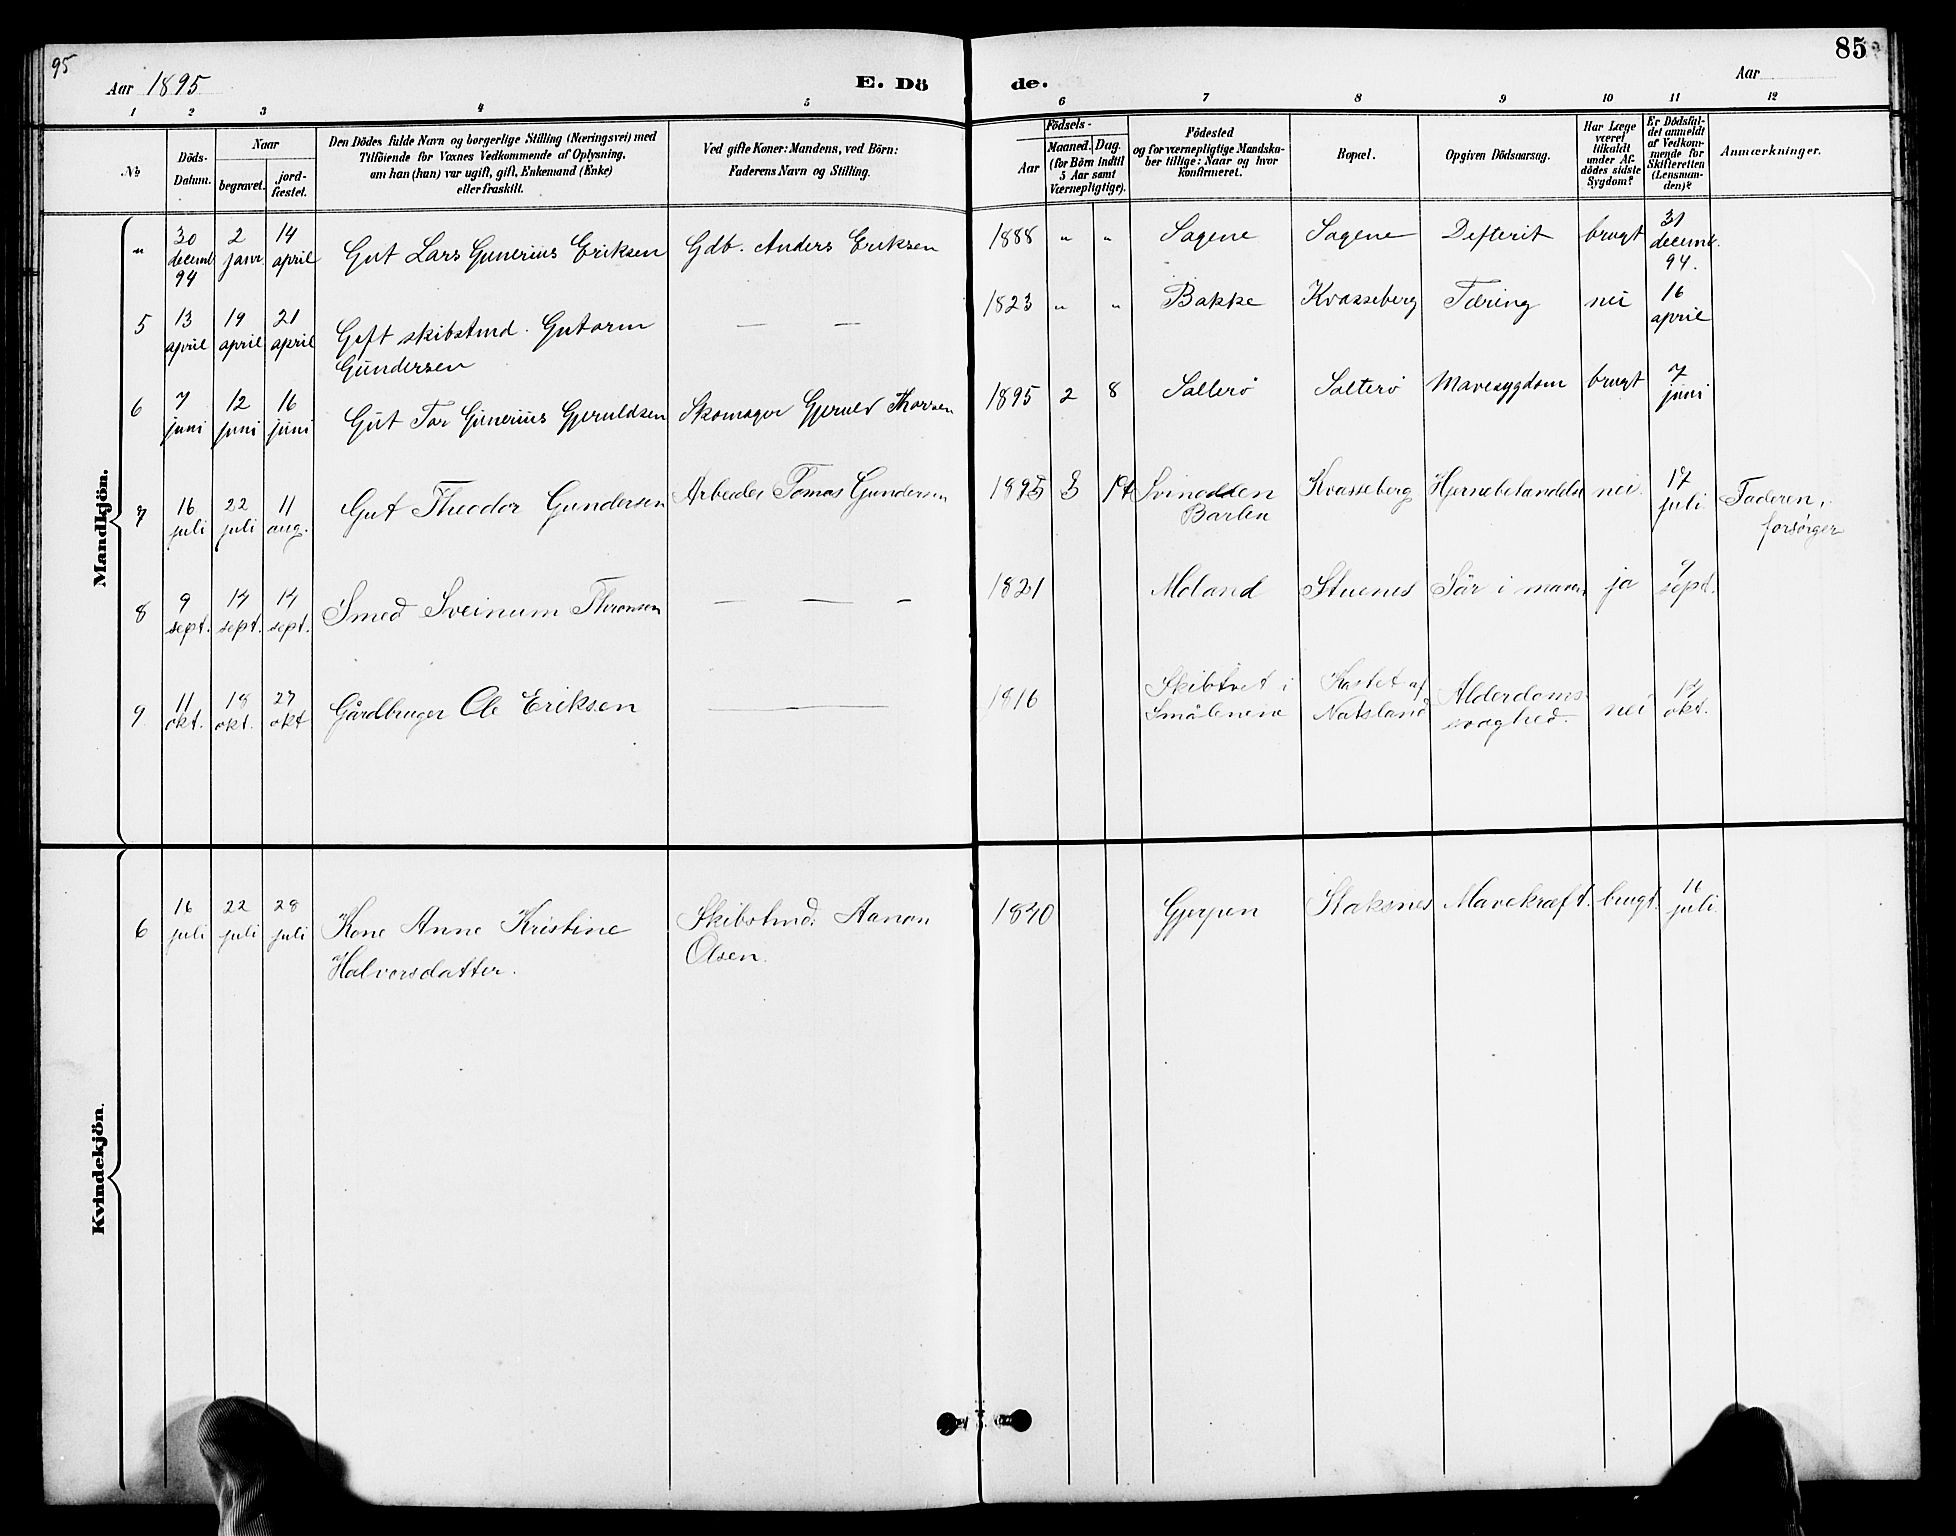 95
85
Aar 1895
E. Dö
de.
Aar
1 2 3 4 5 6 7 8 9 10 11 12
No
Döds-
Datum.
Naar
begravet.
jord-
fæstet.
Den Dödes fulde Navn og borgerlige Stilling (Næringsvei) med
Tilföiende for Voxnes Vedkommende af Oplysning,
om han (hun) var ugift, gift, Enkemand (Enke)
eller fraskilt.
Ved gifte Koner: Mandens, ved Börn:
Faderens Navn og Stilling.
Födsels-
Aar
Maaned. Dag.
(for Börn indtil
5 Aar samt
Værnepligtige).
Födested
og for værnepligtige Mandska-
ber tillige: Naar og hvor
konfirmeret.
Bopæl.
Opgiven Dödsaarsag.
Har Læge
været
tilkaldt
under Af-
dødes sidste
Sygdom?
Er Dödsfal-
det anmeldt
af Vedkom-
mende for
Skifteretten
(Lensman-
den)?
Anmærkninger.
Mandkjön.
" 30 decemb 94 2 janr 14 april Gut Lars Gunerius Eriksen Gdb. Anders Eriksen 1888 " " Sagene Sagene Defterit brugt 31 decemb. 94.
5 13 april 19 april 21 april Gift skibstmd. Gutorm
Gundersen — — 1823 " " Bakke Kvasseberg Tæring nei 16 april
6 7 juni 12 juni 16 juni Gut Tor Gunerius Gjeruldsen Skomager Gjeruld Thorsen 1895 2 8 Salterø Salterø Mavesygdom brugt 7 juni
7 16 juli 22 juli 11 aug. Gut Theodor Gundersen Arbeider Tomas Gundersen 1895 3 14 Svinodden
Barbu Kvasseberg Hjernebetændelse nei. 17 juli Faderen,
forsørger
8 9 sept. 14 sept. 14 sept. Smed Sveinum Thronsen — — - 1821 Moland Stuenes Sår i maven ja 9 sept.
9. 11 okt. 18 okt. 27 okt Gårdbruger Ole Eriksen — 1816 Skibtvet i
Smålenene Kastet af
Natsland Alderdoms-
svaghed. nei 12 okt.
Kvindekjön.
6 16 juli 22 juli 28 juli Kone Anne Kristine
Halvorsdatter. Skibstmd. Aanon
Olsen. 1840 Gjerpen Staksnes Mavekræft. brugt. 16 juli.